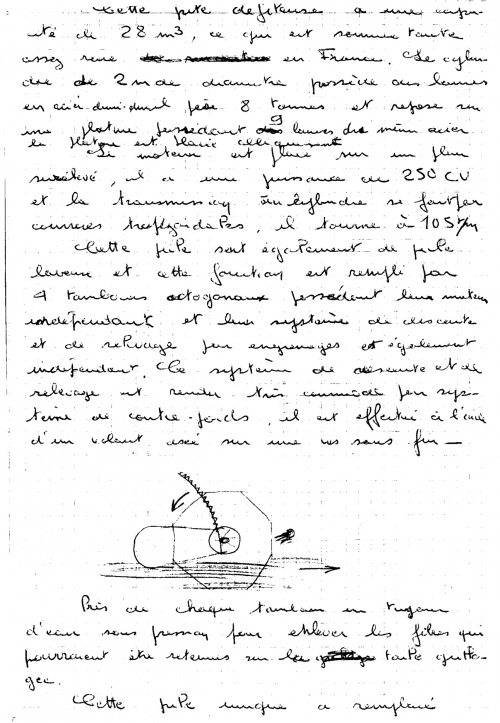 Cette pile défileuse a une capa-
cité de 28 m3, ce qui est somme toute
assez rare en France. Le cylin-
dre de 2 m de diamètre possède des lames
en acier demi-dur il pèse 8 tonnes et repose sur
une platine possédant 9 lames du même acier
la platine est placée obliquement
Le moteur est placé sur un plan
surélevé, il a une puissance de 250 CV
et la transmission au cylindre se fait par
courroies trapézoïdales, il tourne à 105 t/m
Cette pile sert également de pile
laveuse et cette fonction est remplie par
4 tambours octogonaux possédant leur moteur
indépendant et leur système de descente
et de relevage par engrenages est également
indépendant. Ce système de descente et de
relevage est rendu très commode par sys-
tème de contre-poids, il est effectué à l'aide
d'un volant axé sur une vis sans fin —
Près de chaque tambour un tuyau
d'eau sous pression pour enlever les fibres qui
pourraient être retenues sur la toile
Cette pile unique a remplacé